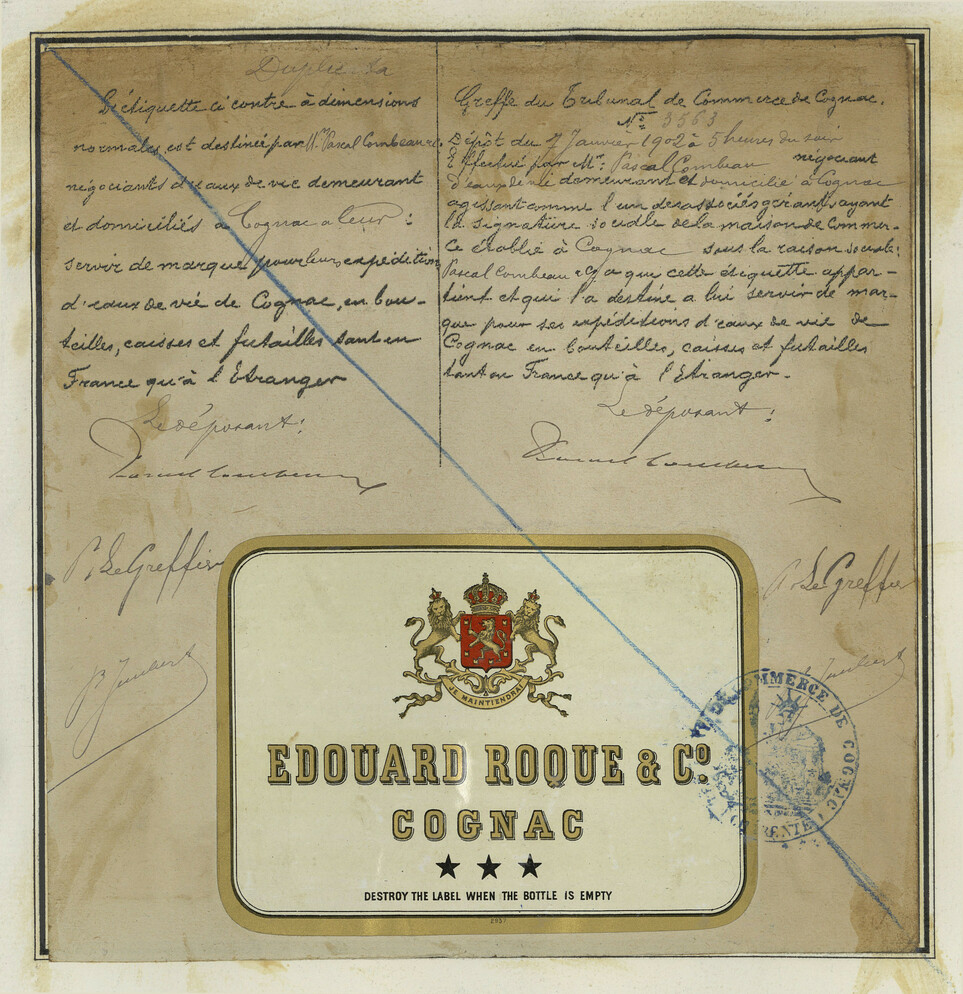 Duplicata
L'étiquette ci contre à dimensions
normales, est destinée par Mrs Pascal Combeau &c.
négociants d'eaux de vie demeurant
et domiciliés à Cognac a leur :
servir de marque pour leurs expéditions
d'eaux de vie de Cognac, en bou-
teilles, caisses et futailles tant en
France qu'à l'Etranger
Le déposant :
P. Le Greffier
Greffe du Tribunal de Commerce de Cognac.
No 3563
Dépôt du 7 Janvier 1902 à 5 heures du soir
Effectué par Mr. Pascal Combeau négociant
d'eaux de vie demeurant et domicilié à Cognac
agissant comme l'un des associés gérants ayant
la signature sociale de la maison de Commer-
ce établie à Cognac sous la raison sociale :
Pascal Combeau & Co a que cette étiquette appar-
tient et qui l'a destine a lui servir de mar-
que pour ses expéditions d'eaux de vie de
Cognac en bouteilles, caisses et futailles
tant en France qu'à l'Etranger.-
Le déposant :
P. Le Greffier
JE MAINTIENDRAI
EDOUARD ROQUE & Co.
COGNAC
DESTROY THE LABEL WHEN THE BOTTLE IS EMPTY
COMMERCE DE COGNAC